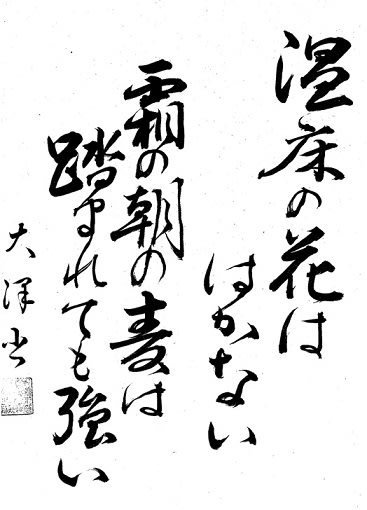 温床の花は
はかない
霜の朝の麦は
踏まれても強い
大澤書